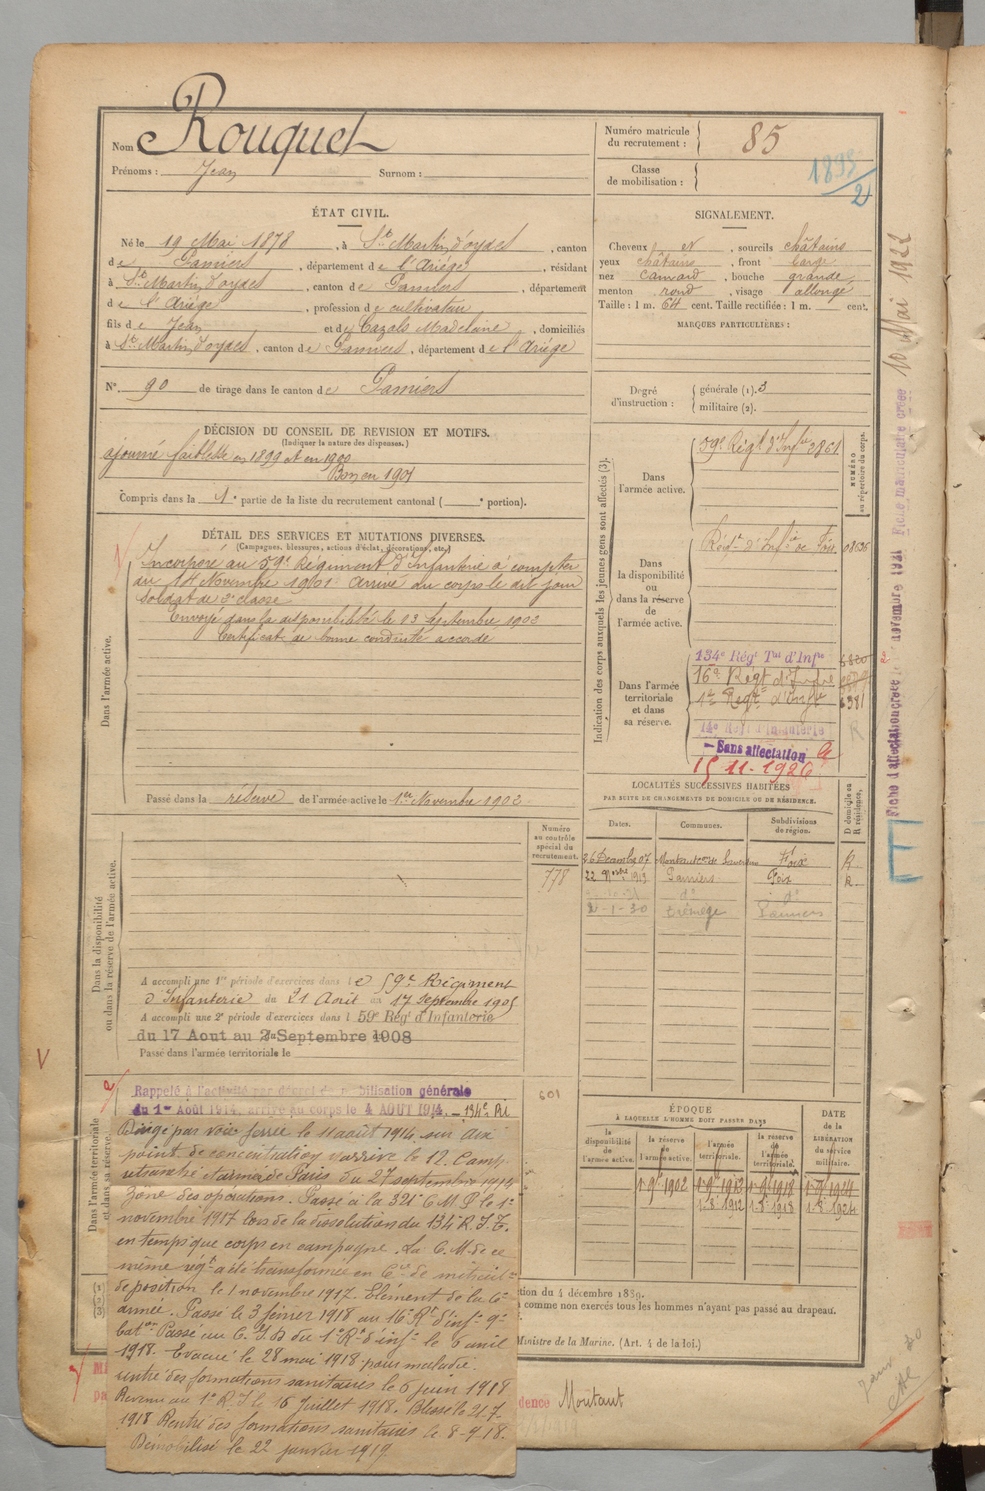 Nom Rouquet
Prénoms : Jean Surnom :
Numéro matricule du recrutement : 85
Classe de mobilisation :
ÉTAT CIVIL.
Né le 19 Mai 1878, à St Martin d'oydes, canton
de Pamiers, département de l'Ariège, résidant
à St Martin d'oydes, canton de Pamiers, département
de l'Ariège, profession de cultivateur
fils de Jean et de Cazals Madelaine, domiciliés
à St Martin d'oydes, canton de Pamiers, département de l'Ariège
N° 90 de tirage dans le canton de Pamiers
SIGNALEMENT.
Cheveux et, sourcils châtains
yeux châtains, front large
nez camard, bouche grande
menton rond, visage allongé
Taille : 1 m. 64 cent. Taille rectifiée : 1 m. cent.
MARQUES PARTICULIÈRES :
Degré d'instruction : générale (1). 3
militaire (2).
DÉCISION DU CONSEIL DE REVISION ET MOTIFS.
(Indiquer la nature des dispenses.)
ajourné faiblesse en 1899 et en 1900
Bon en 1901
Compris dans la 1e partie de la liste du recrutement cantonal ( e portion).
DÉTAIL DES SERVICES ET MUTATIONS DIVERSES.
(Campagnes, blessures, actions d'éclat, décorations, etc.)
Dans l'armée active.
Incorporé au 59e Régiment d'Infanterie à compter
du 14 Novembre 1901. Arrivé au corps le dit jour
Soldat de 2e classe
Envoyé dans la disponibilité le 23 Septembre 1902
Certificat de bonne conduite accordé
Passé dans la réserve de l'armée active le 1er Novembre 1902
Indication des corps auxquels les jeunes gens sont affectés (3).
NUMÉRO au répertoire du corps.
Dans l'armée active.
59e Régt d'Infie 3861
Dans la disponibilité ou dans la réserve de l'armée active.
Régt d'Infie de Foix 08636
Dans l'armée territoriale et dans sa réserve.
134e Régt Tal d'Infie
16e Régt d'Infie
1er Régt d'Infie 6381
14e Régt d'Infanterie
Sans affectation
15 11-1926
LOCALITÉS SUCCESSIVES HABITÉES
PAR SUITE DE CHANGEMENTS DE DOMICILE OU DE RÉSIDENCE.
Dates. Communes. Subdivisions de région. D domicile ou R résidence.
26 Décembre 07 Foix R
22 1913 Pamiers Foix R
d° d°
2-1-30 Pamiers
Dans la disponibilité ou dans la réserve de l'armée active.
Numéro au contrôle spécial du recrutement.
778
A accompli une 1re période d'exercices dans le 59e Régiment
d'Infanterie du 21 Août au 17 Septembre 1905
A accompli une 2e période d'exercices dans l 59e Régt d'Infanterie
du 17 Aout au 7 Septembre 1908
Passé dans l'armée territoriale le
Dans l'armée territoriale et dans sa réserve.
Rappelé à l'activité par décret de mobilisation générale
du 1er Août 1914, arrivé au corps le 4 AOUT 1914. — 134e RI
Dirigé par voie ferrée le 11 août 1914 sur
point de concentration y arrivé le 12. Camp
retranché et armée de Paris du 27 septembre 1914
Zône des opérations. Passé à la 321e C M P le 1er
novembre 1917 lors de la dissolution du 134e R.I.T.
en temps que corps en campagne. La C.M. de ce
même régt a été transformée en Cie de mitrail=
de position le 1 novembre 1917. Elément de la 6e
armée. Passé le 3 février 1918 au 16e Rt d'inf. 9e
bat. Passé au C.I.D du 1er Rt d'inf. le 6 avril
1918. Evacué le 28 mai 1918 pour maladie.
rentré des formations sanitaires le 6 juin 1918
Revenu au 1er R.I. le 16 juillet 1918. Blessé le 21-7-
1918. Rentré des formations sanitaires le 8-9-18.
Démobilisé le 22 janvier 1919.
601
ÉPOQUE
À LAQUELLE L'HOMME DOIT PASSER DANS
la disponibilité de l'armée active. la réserve de l'armée active. l'armée territoriale. la réserve de l'armée territoriale.
DATE de la LIBÉRATION du service militaire.
1er 9bre 1902 1er 9bre 1912 1er 9bre 1918 1er 9bre 1924
1-8-1912 1-8-1918 1-8-1924
tion du 4 décembre 1889.
comme non exercés tous les hommes n'ayant pas passé au drapeau.
Ministre de la Marine. (Art. 4 de la loi.)
dence Moutaut
Fiche matriculaire créée 10 Mai 1922
Fiche d'affectation créée le novembre 1921